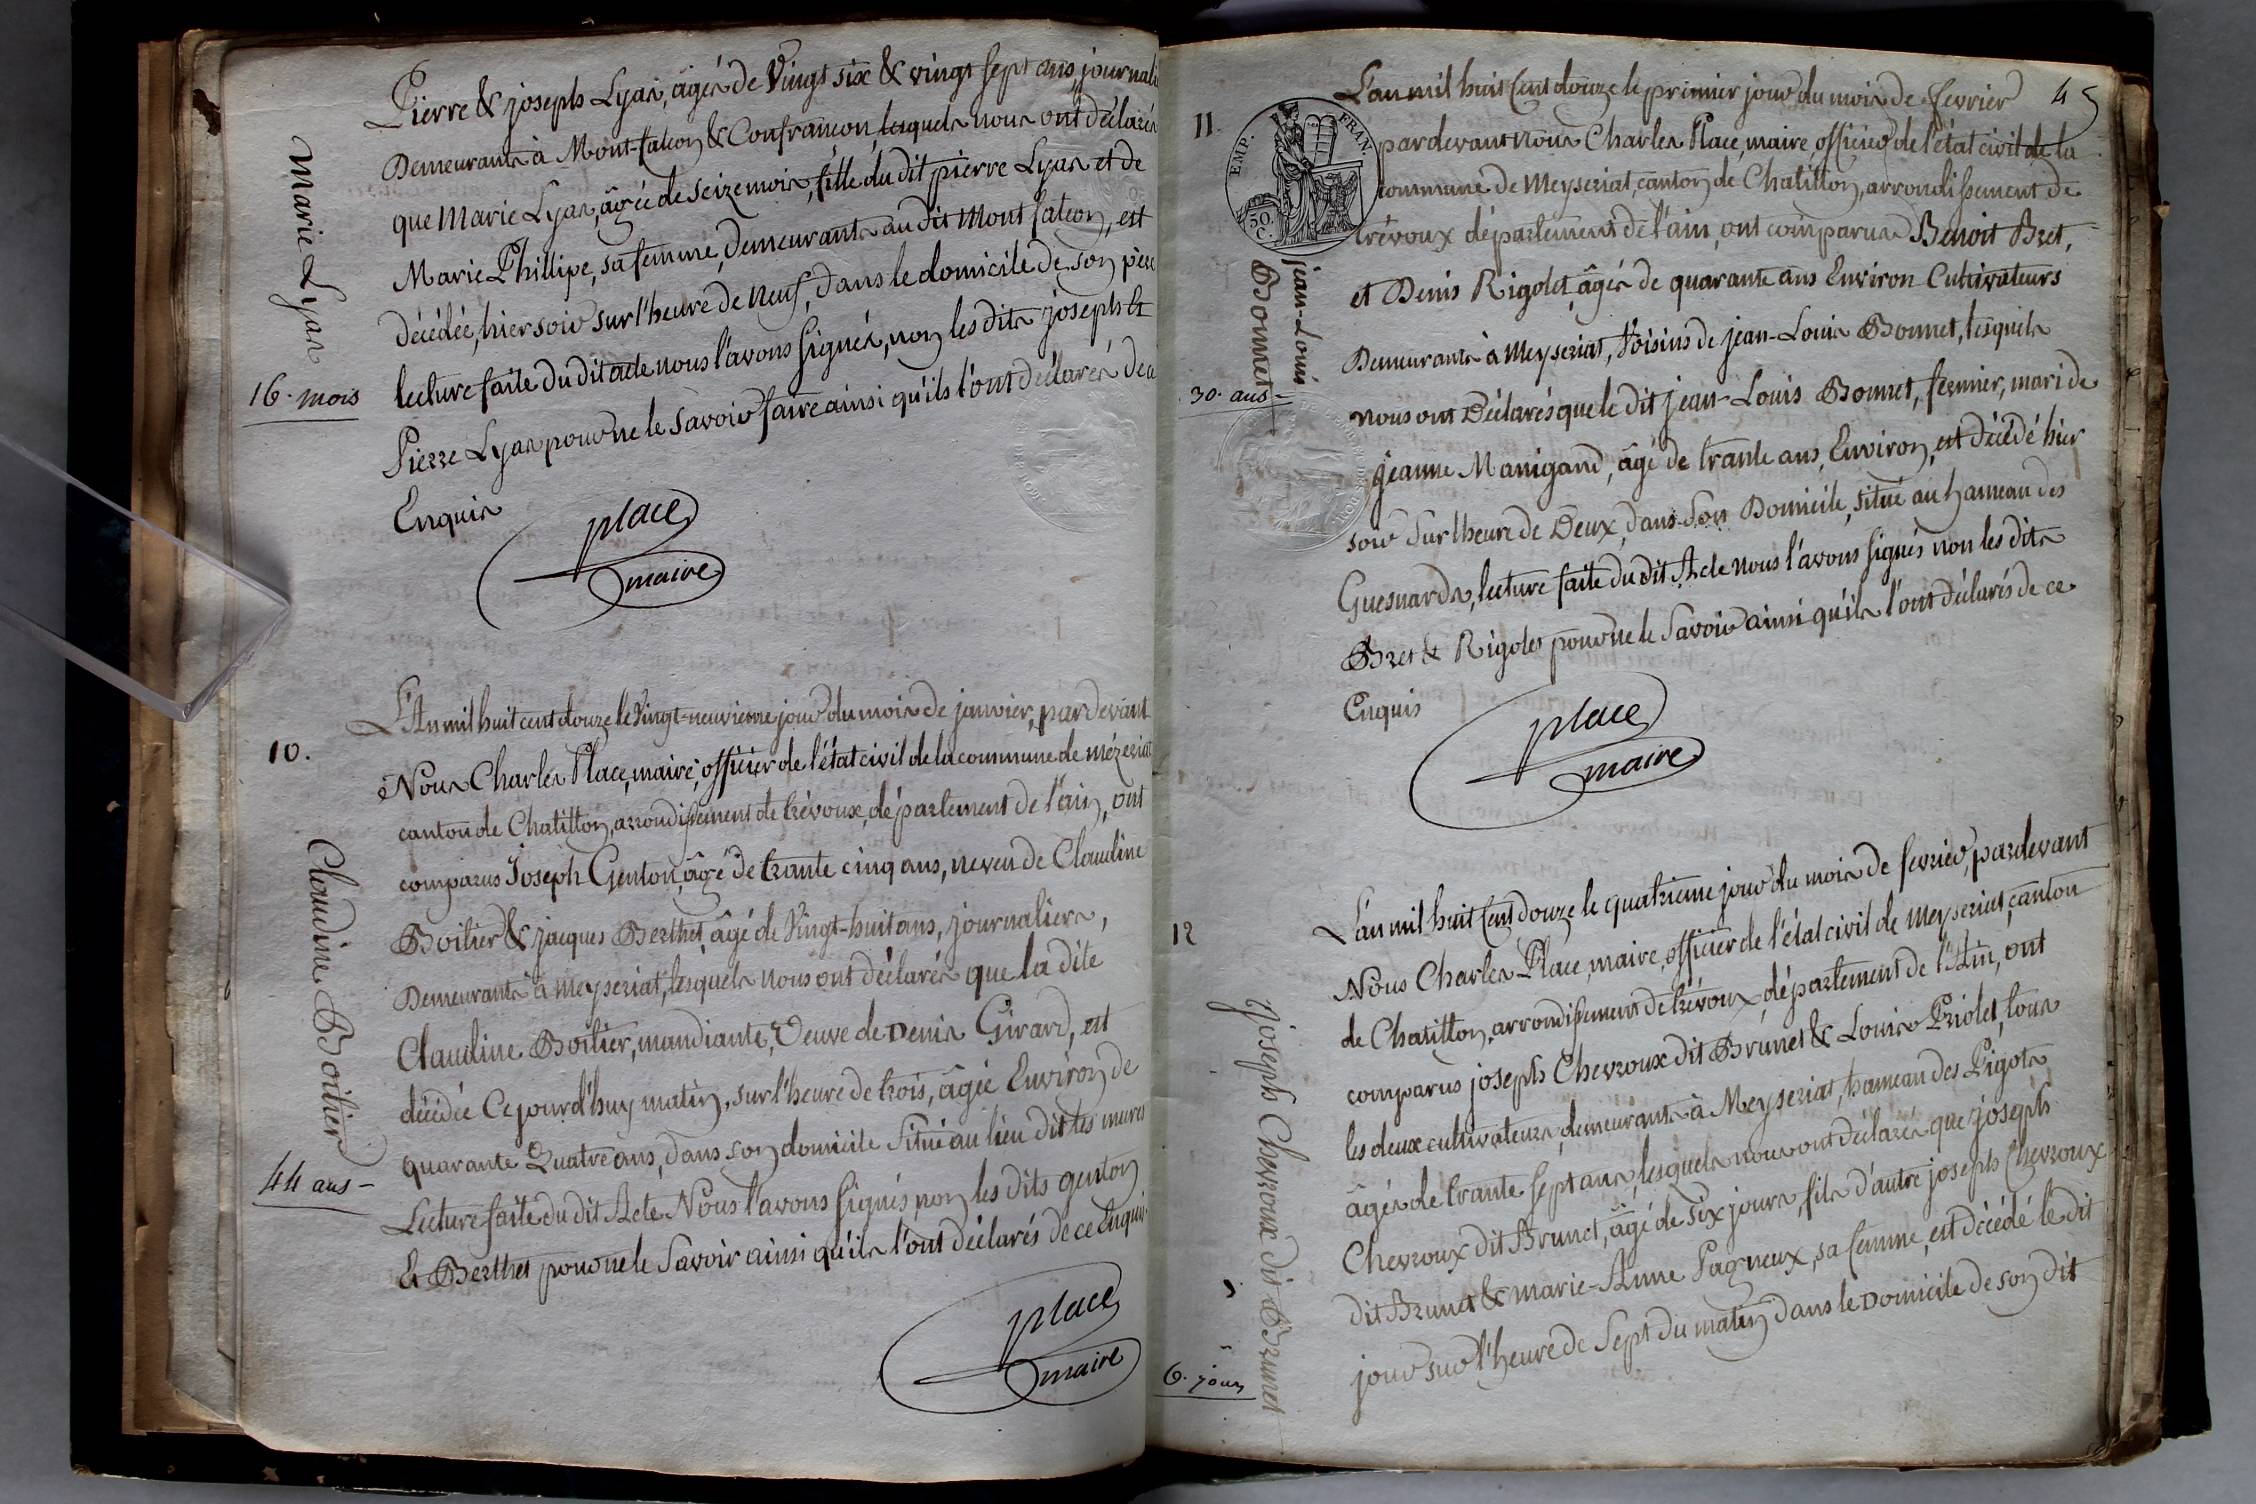 Pierre & joseph Lyas, âgés de Vingt six & vingt sept ans, journali
Demeurants à Mont-falcon & Confrancon, lesquels nous ont déclarés
que Marie Lyas, âgée de seize mois, fille du dit pierre Lyas et de
Marie Phillipe, sa femme, demeurants au dit Mont falcon, est
décédée, hier soir sur l'heure de neuf, dans le domicile de son père
lecture faite du dit acte nous l'avons signés, non les dits joseph &
Pierre Lyas pour ne le savoir faire ainsi qu'ils l'ont déclarés de ce
Enquis
place
maire
Marie Lyas
16. mois
10.
L'An mil huit cent douze le Vingt-neuvieme jour du mois de janvier, pardevant
Nous Charles Place, maire, officier de l'état civil de la commune de mézeriat
canton de Chatillon, arrondissement de trévoux, département de l'ain, ont
comparus Joseph Genton, âgé de trante cinq ans, neveu de Claudine
Boilier & jacques Berthet, âgé de Vingt-huit ans, journaliers,
Demeurants à meyseriat, lesquels nous ont déclarés que la dite
Claudine Boilier, mandiante, Veuve de Denis Girard, est
décédée Ce jourd'huy matin, sur l'heure de trois, âgée Environ de
quarante Quatre ans, dans son domicile Situé au lieu dit les mures
Lecture faite du dit Acte Nous l'avons signés, non les dits genton
& Berthet pour ne le Savoir ainsi qu'ils l'ont déclarés de ce Enquis
place
maire
Claudine Boilier
44 ans
45
11
EMP. FRAN.
50. C.
L'an mil huit Cent douze le primier jour du mois de fevrier
pardevant nous Charles Place, maire officier de l'état civil de la
commune de Meyseriat, canton de Chatillon, arrondissement de
trévoux département de l'ain, ont comparus Benoit Bret,
et Denis Rigolet, âgés de quarante ans Environ Cultivateurs
Demeurants à Meyseriat, Voisins de jean-Louis Bonnet, lesquels
nous ont Déclarés que le dit jean-Louis Bonnet, fermier, mari de
jeanne Manigand, âgé de trante ans, Environ, est décédé hier
soir Sur l'heure de Deux, dans Son Domicile, situé au hameau des
Guesnards, lecture faite du dit Acte nous l'avons signés non les dits
Bret & Rigolet pour ne le Savoir ainsi qu'ils l'ont déclarés de ce
Enquis
place
maire
jean-Louis
Bonnet
30. ans
12
L'an mil huit Cent douze le quatrieme jour du mois de fevrier, pardevant
Nous Charles Place, maire, officier de l'état civil de Meyseriat, canton
de Chatillon, arrondissement de trévoux, département de l'Ain, ont
comparus joseph Chevroux dit Brunet & Louis Priolet, tous
les deux cultivateurs, demeurants à Meyseriat, hameau des Pigots
âgés de trante sept ans, lesquels nous ont déclarés que joseph
Chevroux dit Brunet, âgé de six jours, fils d'autre joseph Chevroux
dit Brunet & marie-Anne Pagneux, sa femme, est décédé le dit
jour sur l'heure de Sept du matin dans le Domicile de son dit
Joseph Chevroux dit Brunet
6. jours